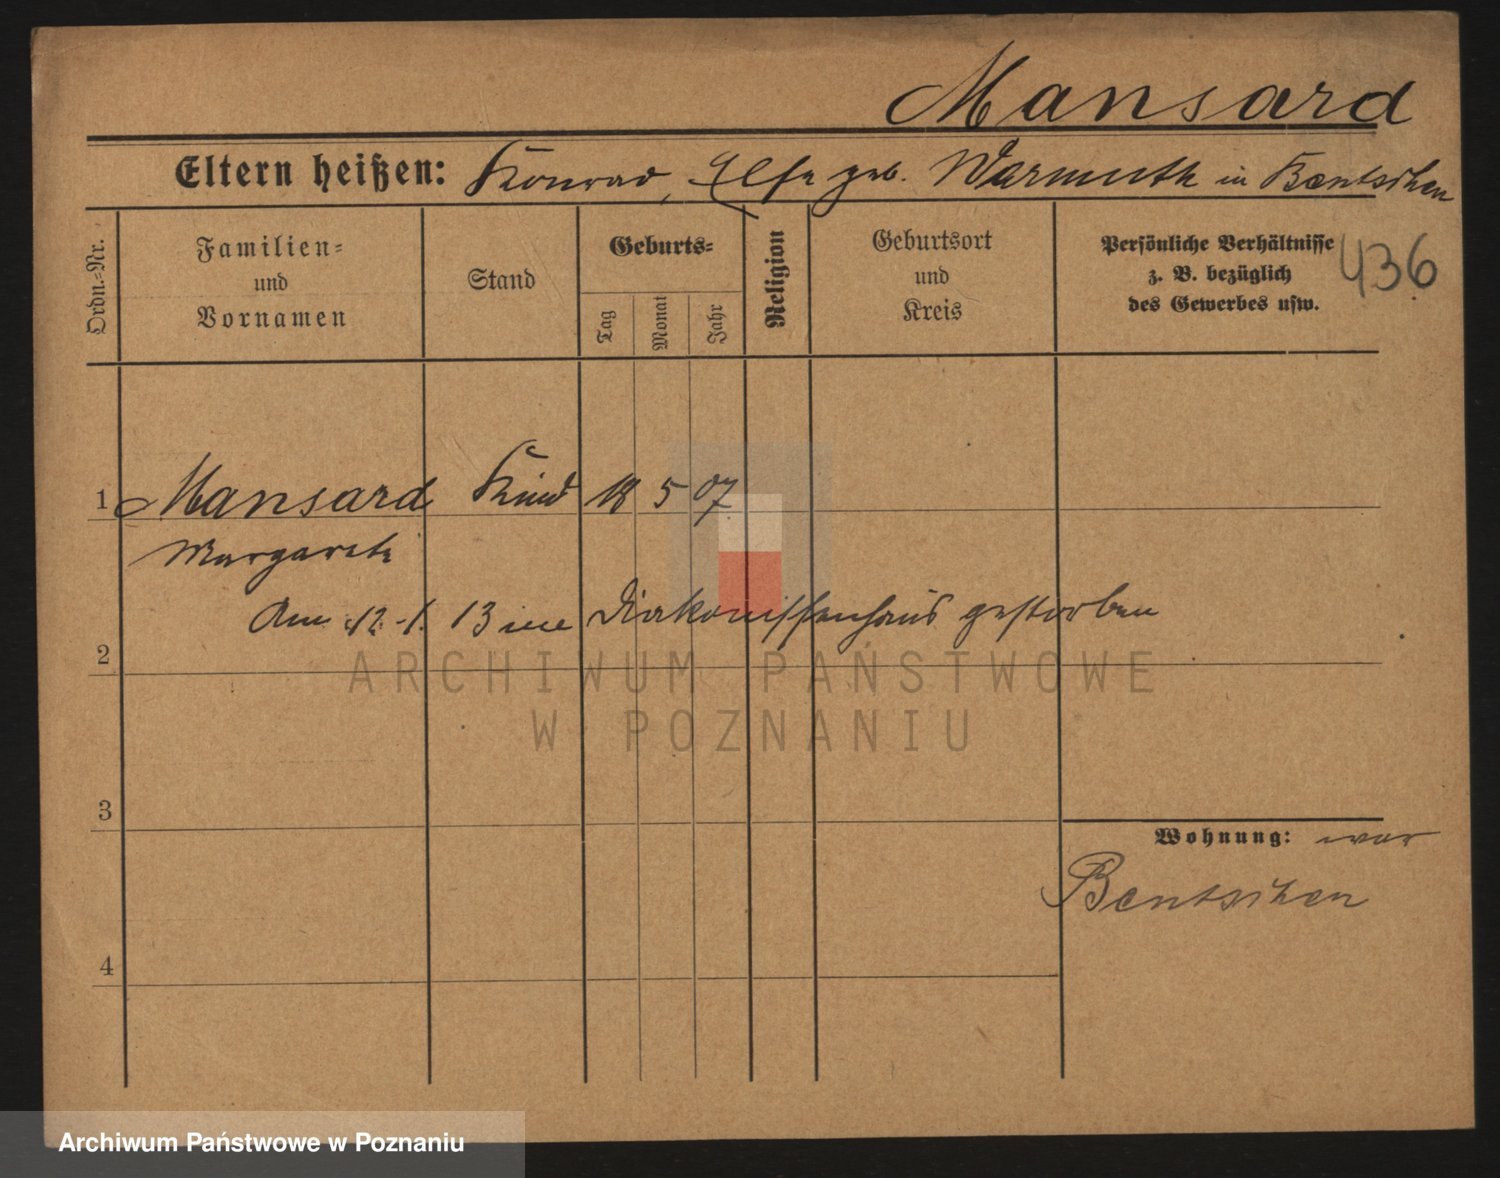 Mansard
Eltern heißen: Konrad, Else geb. Warmuth in Bentschen
Ordn.-Nr.
Familien-
und
Vornamen
Stand
Geburts-
Tag
Monat
Jahr
Religion
Geburtsort
und
Kreis
Persönliche Verhältnisse
z. B. bezüglich
des Gewerbes usw.
436
1 Mansard Kind 18 5 07
Margarete
Am 12. 1. 13 im Diakonissenhaus gestorben
2
ARCHIWUM PAŃSTWOWE
W POZNANIU
3
Wohnung: war
Bentschen
4
Archiwum Państwowe w Poznaniu